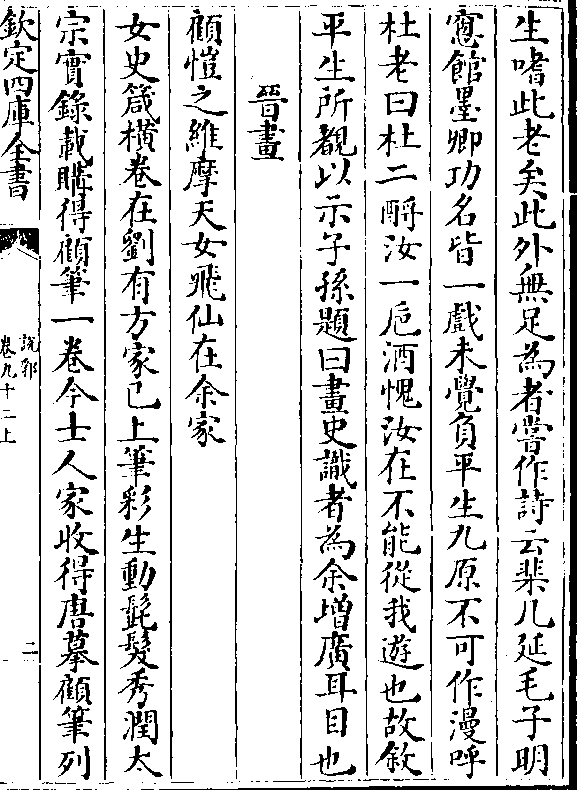 生嗜此老矣此外無足為者嘗作詩云棐几延毛子明
窻館墨卿功名皆一戲未覺負平生九原不可作漫呼
杜老曰杜二酹汝一巵酒愧汝在不能從我遊也故敘
平生所覩以示子孫題曰畫史識者為余增廣耳目也
晉畫
顧愷之維摩天女飛仙在余家
女史箴橫卷在劉有方家已上筆彩生動髭髮秀潤太
宗實錄載購得顧筆一卷今士人家收得唐摹顧筆列
欽定四庫全書
說郛
卷九十二上
二